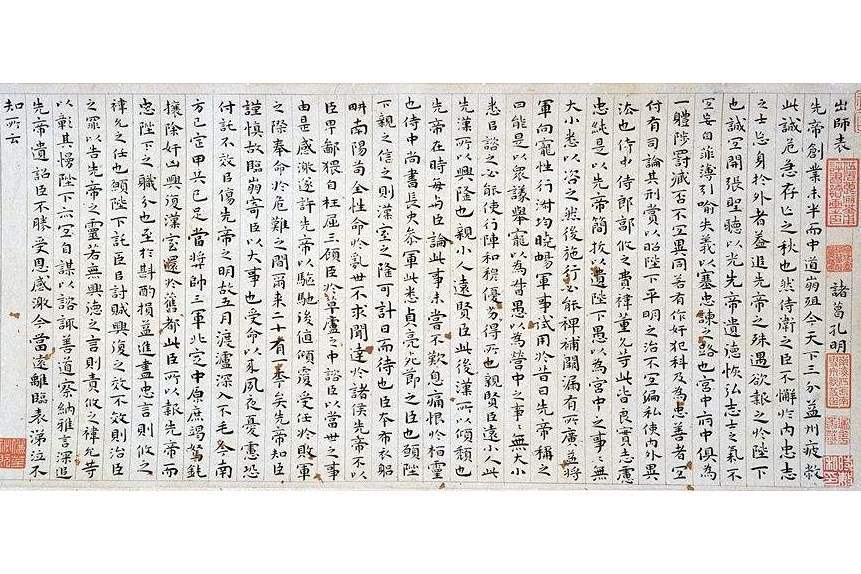 出師表 諸葛孔明
先帝創業未半而中道崩殂今天下三分益州疲敝
此誠危急存亡之秋也然侍衛之臣不懈於內忠志
之士忘身於外者蓋追先帝之殊遇欲報之於陛下
也誠宜開張聖聽以光先帝遺德恢弘志士之氣不
宜妄自菲薄引喻失義以塞忠諫之路也宮中府中俱為
一體陟罰臧否不宜異同若有作奸犯科及為忠善者宜
付有司論其刑賞以昭陛下平明之治不宜偏私使內外異
法也侍中侍郎郭攸之費禕董允等此皆良實志慮
忠純是以先帝簡拔以遺陛下愚以為宮中之事事無
大小悉以咨之然後施行必能裨補闕漏有所廣益將
軍向寵性行淑均曉暢軍事試用於昔日先帝稱之
曰能是以眾議舉寵以為督愚以為營中之事事無大小
悉諮之必能使行陣和穆優劣得所也親賢臣遠小人此
先漢所以興隆也親小人遠賢臣此後漢所以傾頹也
先帝在時每與臣論此事未嘗不歎息痛恨於桓靈
也侍中尚書長史參軍此悉貞亮死節之臣也願陛
下親之信之則漢室之隆可計日而待也臣本布衣躬
耕南陽苟全性命於亂世不求聞達於諸侯先帝不以
臣卑鄙猥自枉屈三顧臣於草廬之中諮臣以當世之事
由是感激遂許先帝以驅馳後值傾覆受任於敗軍
之際奉命於危難之間爾來二十有一年矣先帝知臣
謹慎故臨崩寄臣以大事也受命以來夙夜憂慮恐
付託不效以傷先帝之明故五月渡瀘深入不毛今南
方已定甲兵已足當獎帥三軍北定中原庶竭駑鈍
攘除奸凶興復漢室還於舊都此臣所以報先帝而
忠陛下之職分也至於斟酌損益進盡忠言則攸之
禕允之任也願陛下託臣以討賊興復之效不效則治臣
之罪以告先帝之靈若無興德之言則責攸之禕允等
以彰其慢陛下亦宜自謀以諮諏善道察納雅言深追
先帝遺詔臣不勝受恩感激今當遠離臨表涕泣不
知所云